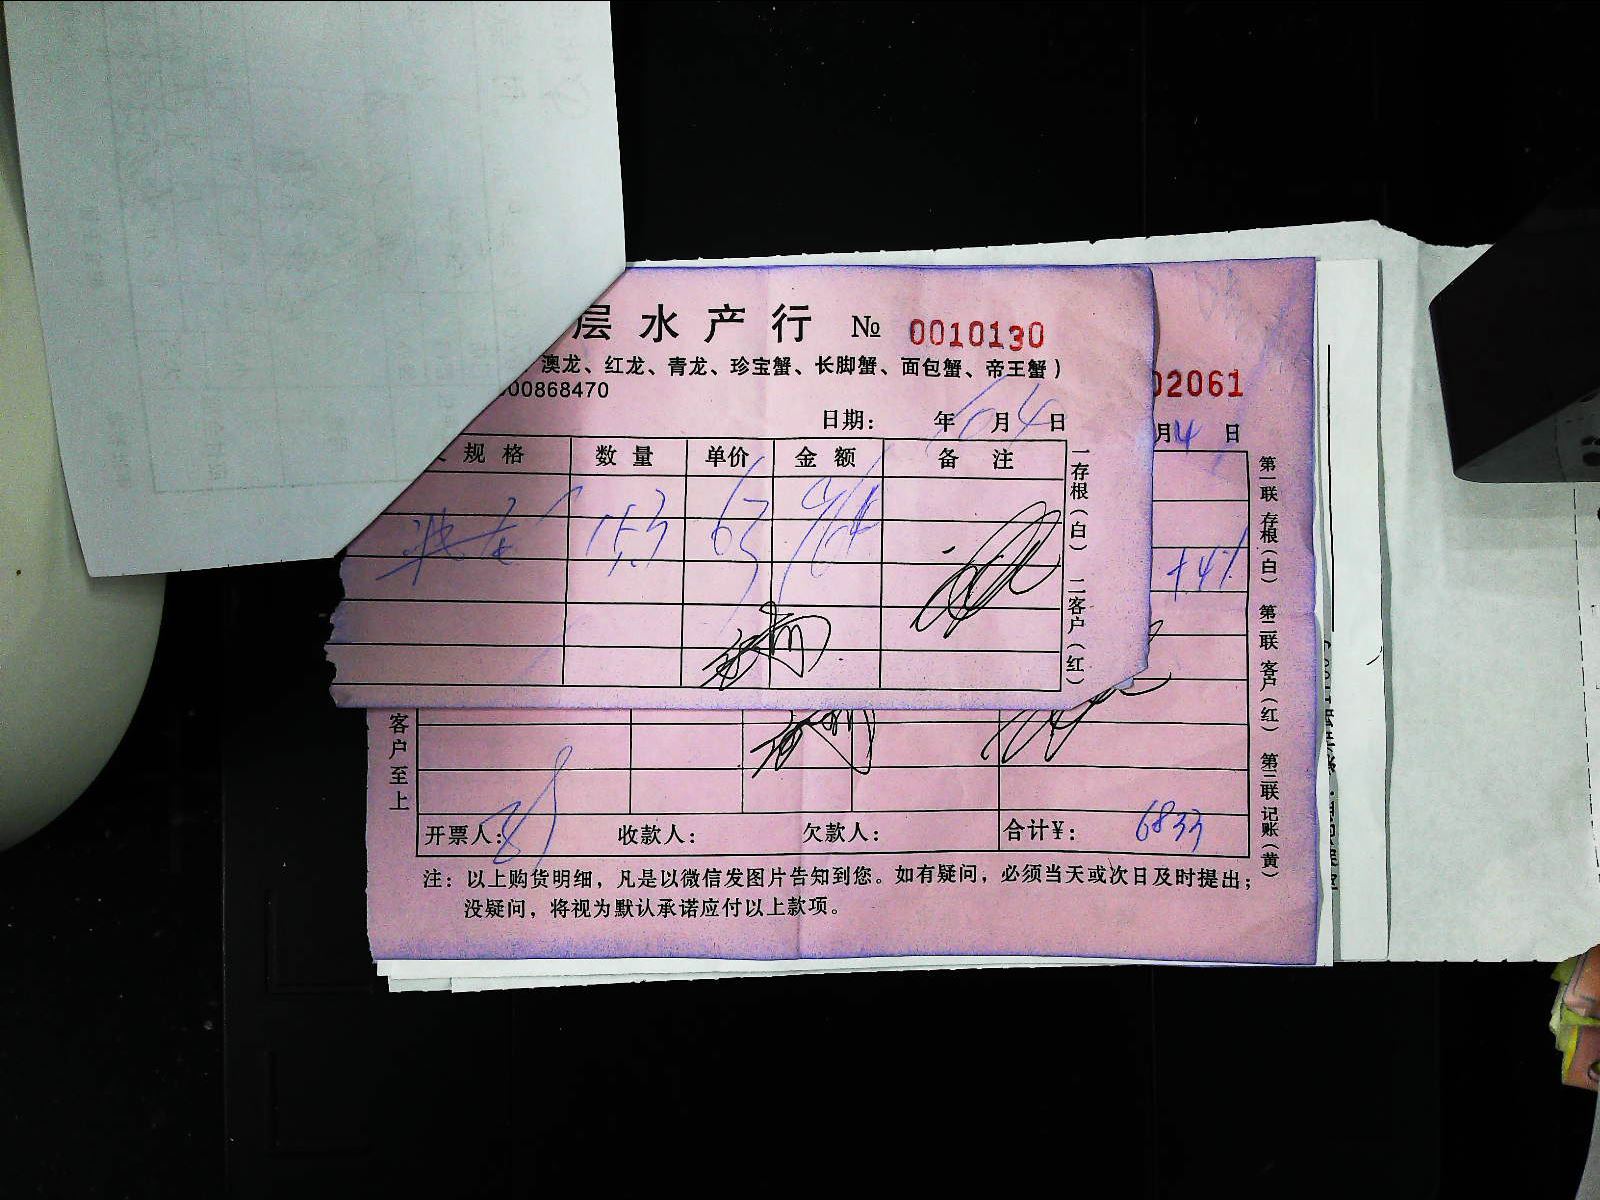 层水产行 № 0010130
澳龙、红龙、青龙、珍宝蟹、长脚蟹、面包蟹、帝王蟹）
00868470
日期： 年 10 月 4 日
规格 数量 单价 金额 备注
15.3 63 964
一存根（白） 二客户（红）
02061
月 4 日
+4%
第一联 存根（白） 第二联 客户（红） 第三联 记账（黄）
客户至上
开票人： 收款人： 欠款人： 合计¥： 6833
注：以上购货明细，凡是以微信发图片告知到您。如有疑问，必须当天或次日及时提出；
没疑问，将视为默认承诺应付以上款项。